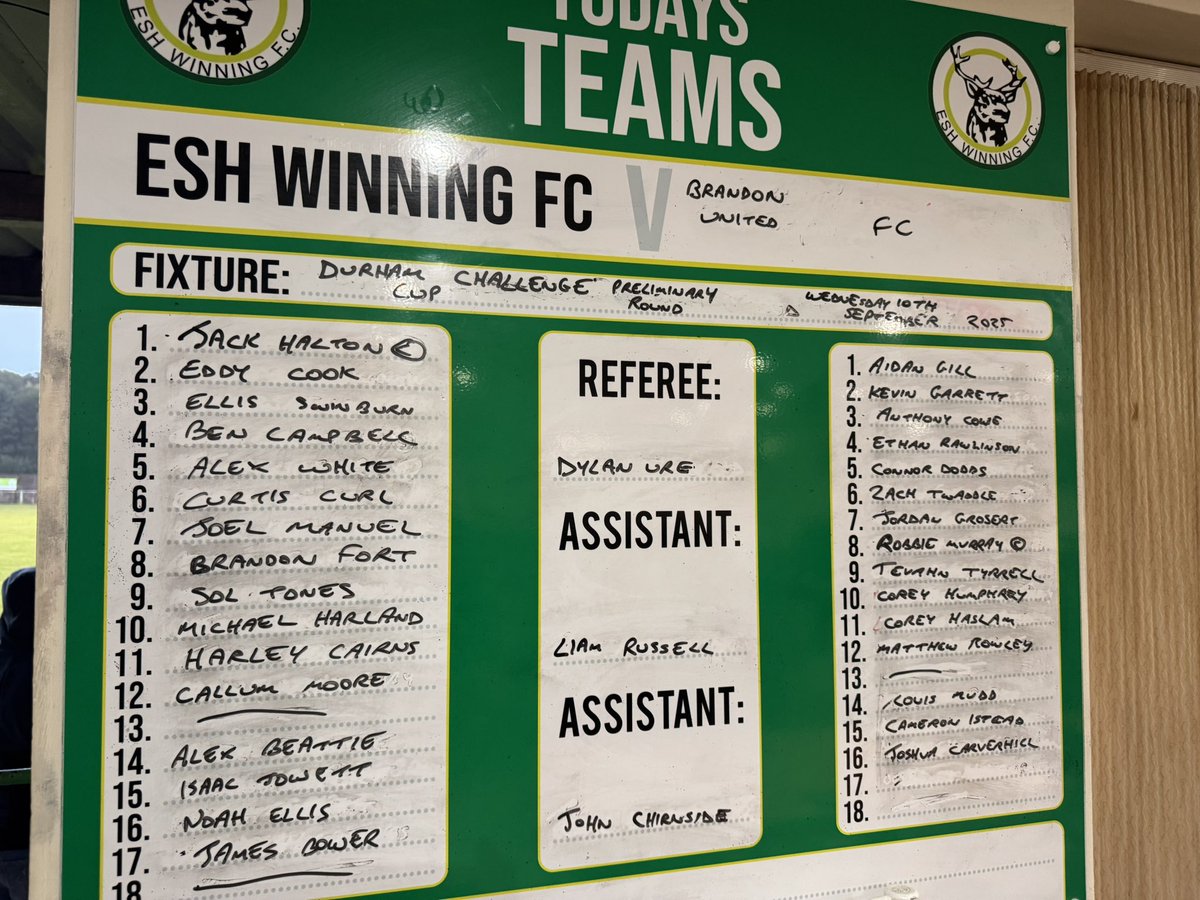 ESH WINNING F.C.
TODAYS
TEAMS
ESH WINNING F.C.
ESH WINNING FC V BRANDON UNITED FC
FIXTURE: DURHAM CHALLENGE CUP PRELIMINARY ROUND WEDNESDAY 10TH SEPTEMBER 2025
1. JACK HALTON ©
2. EDDY COOK
3. ELLIS SWINBURN
4. BEN CAMPBELL
5. ALEX WHITE
6. CURTIS CURL
7. JOEL MANUEL
8. BRANDON FORT
9. SOL JONES
10. MICHAEL HARLAND
11. HARLEY CAIRNS
12. CALLUM MOORE
13.
14. ALEX BEATTIE
15. ISAAC JOWETT
16. NOAH ELLIS
17. JAMES BOWER
18.
REFEREE:
DYLAN URE
ASSISTANT:
LIAM RUSSELL
ASSISTANT:
JOHN CHIRNSIDE
1. AIDAN GILL
2. KEVIN GARRETT
3. ANTHONY COWE
4. ETHAN RAWLINSON
5. CONNOR DODDS
6. ZACH TWADDLE
7. JORDAN GROSERT
8. ROBBIE MURRAY ©
9. TEVAHN TYRRELL
10. COREY HUMPHREY
11. COREY HASLAM
12. MATTHEW ROWLEY
13.
14. LOUIS MUDD
15. CAMERON ISTEAD
16. JOSHUA CARVERHILL
17.
18.